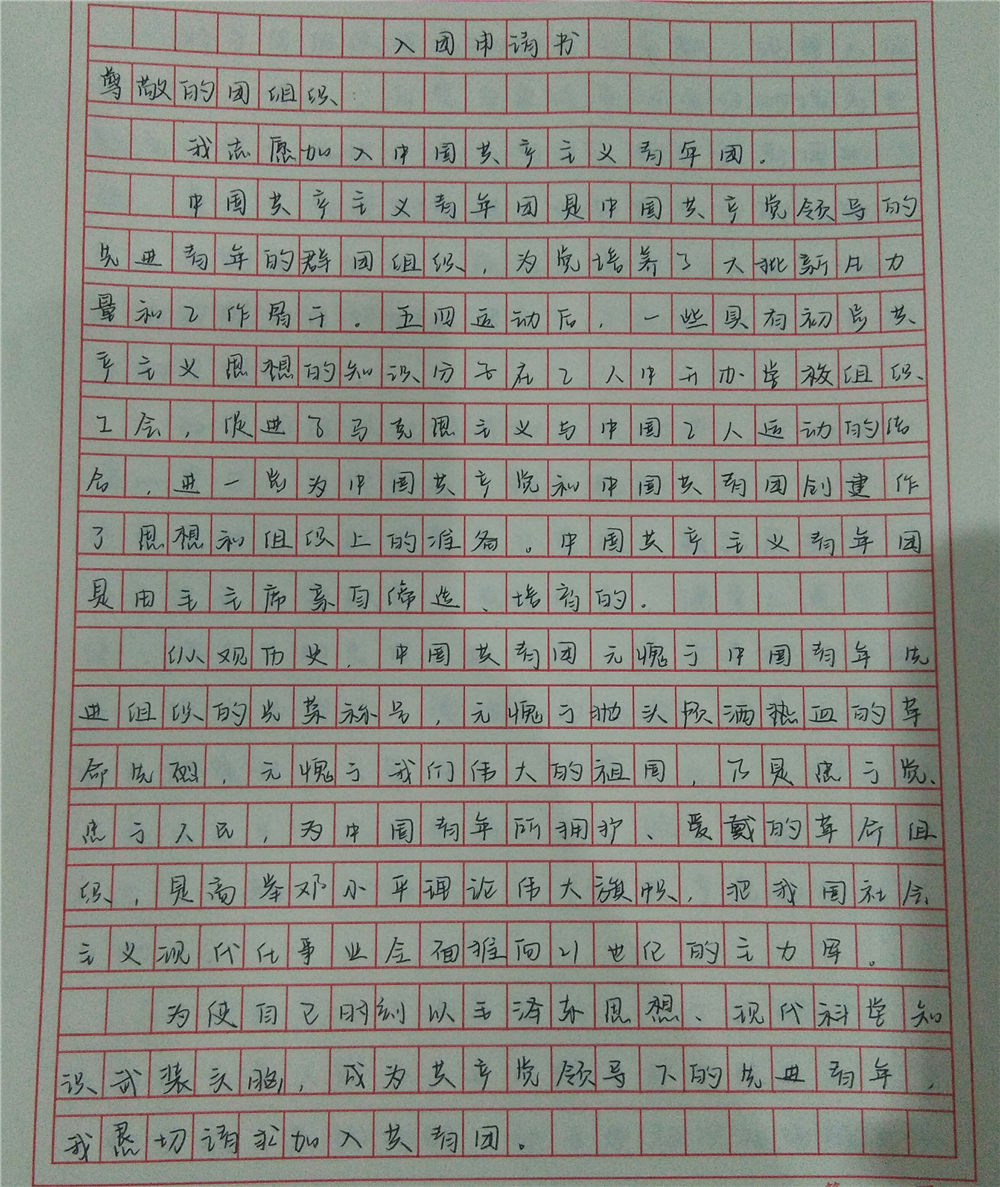 入团申请书
尊敬的团组织:
我志愿加入中国共产主义青年团.
中国共产主义青年团是中国共产党领导的
先进青年的群团组织,为党培养了大批新生力
量和工作骨干。五四运动后,一些具有初步共
产主义思想的知识分子在工人中开办学校组织
工会,促进了马克思主义与中国工人运动的结
合,进一步为中国共产党和中国共青团创建作
了思想和组织上的准备。中国共产主义青年团
是由毛主席亲自缔造、培育的.
纵观历史,中国共青团无愧于中国青年先
进组织的光荣称号,无愧于抛头颅洒热血的革
命先烈,无愧于我们伟大的祖国,乃是忠于党、
忠于人民,为中国青年所拥护、爱戴的革命组
织,是高举邓小平理论伟大旗帜,把我国社会
主义现代化事业全面推向21世纪的主力军。
为使自己时刻以毛泽东思想、现代科学知
识武装头脑,成为共产党领导下的先进青年,
我恳切请求加入共青团。